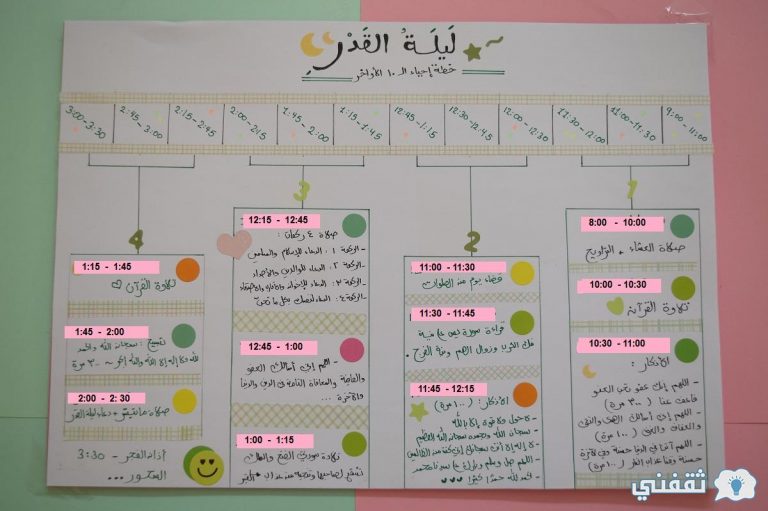 لَيلَةُ القَدْرِ
خطة إحياء الـ ١٠ الأواخر
9:00 - 11:00
11:00 - 11:30
11:30 - 12:00
12:00 - 12:30
12:30 - 12:45
12:45 - 1:15
1:15 - 1:45
1:45 - 2:00
2:00 - 2:15
2:15 - 2:45
2:45 - 3:00
3:00 - 3:30
1
8:00 - 10:00
صلاة العشاء + التراويح
10:00 - 10:30
تلاوة القرآن
10:30 - 11:00
الأذكار:
- اللهم إنك عفو تحب العفو
فاعف عنا (٣٠٠ مرة)
- اللهم إني أسألك الهدى والتقى
والعفاف والغنى (١٠٠ مرة)
- اللهم آتنا في الدنيا حسنة وفي الآخرة
حسنة وقنا عذاب النار (١٠٠ مرة)
2
11:00 - 11:30
قضاء يوم من الصلوات
11:30 - 11:45
قراءة سورة يس على نية
فك الكرب وزوال الهم
11:45 - 12:15
الأذكار: (١٠٠ مرة)
- لا حول ولا قوة إلا بالله
- سبحان الله وبحمده سبحان الله العظيم
- لا إله إلا أنت سبحانك إني كنت من الظالمين
- اللهم صل وسلم وبارك على سيدنا محمد
- الحمد لله حمدا كثيرا
3
12:15 - 12:45
صلاة ٤ ركعات:
- الركعة ١: الدعاء للإسلام والمسلمين
- الركعة ٢: الدعاء للوالدين والأجداد
- الركعة ٣: الدعاء للإخوة
- الركعة ٤: الدعاء لنفسك بكل ما تحب
12:45 - 1:00
- اللهم إني أسألك العفو
والعافية والمعافاة الدائمة في الدين والدنيا
والآخرة ...
1:00 - 1:15
تلاوة سورتي الفتح والملك
4
1:15 - 1:45
تلاوة القرآن
1:45 - 2:00
تسبيح: سبحان الله والحمد
لله ولا إله إلا الله والله أكبر ~ ٣٠٠ مرة
2:00 - 2:30
صلاة ما تيسر + دعاء ليلة القدر
أذان الفجر - 3:30
السحور ...
ثقفني